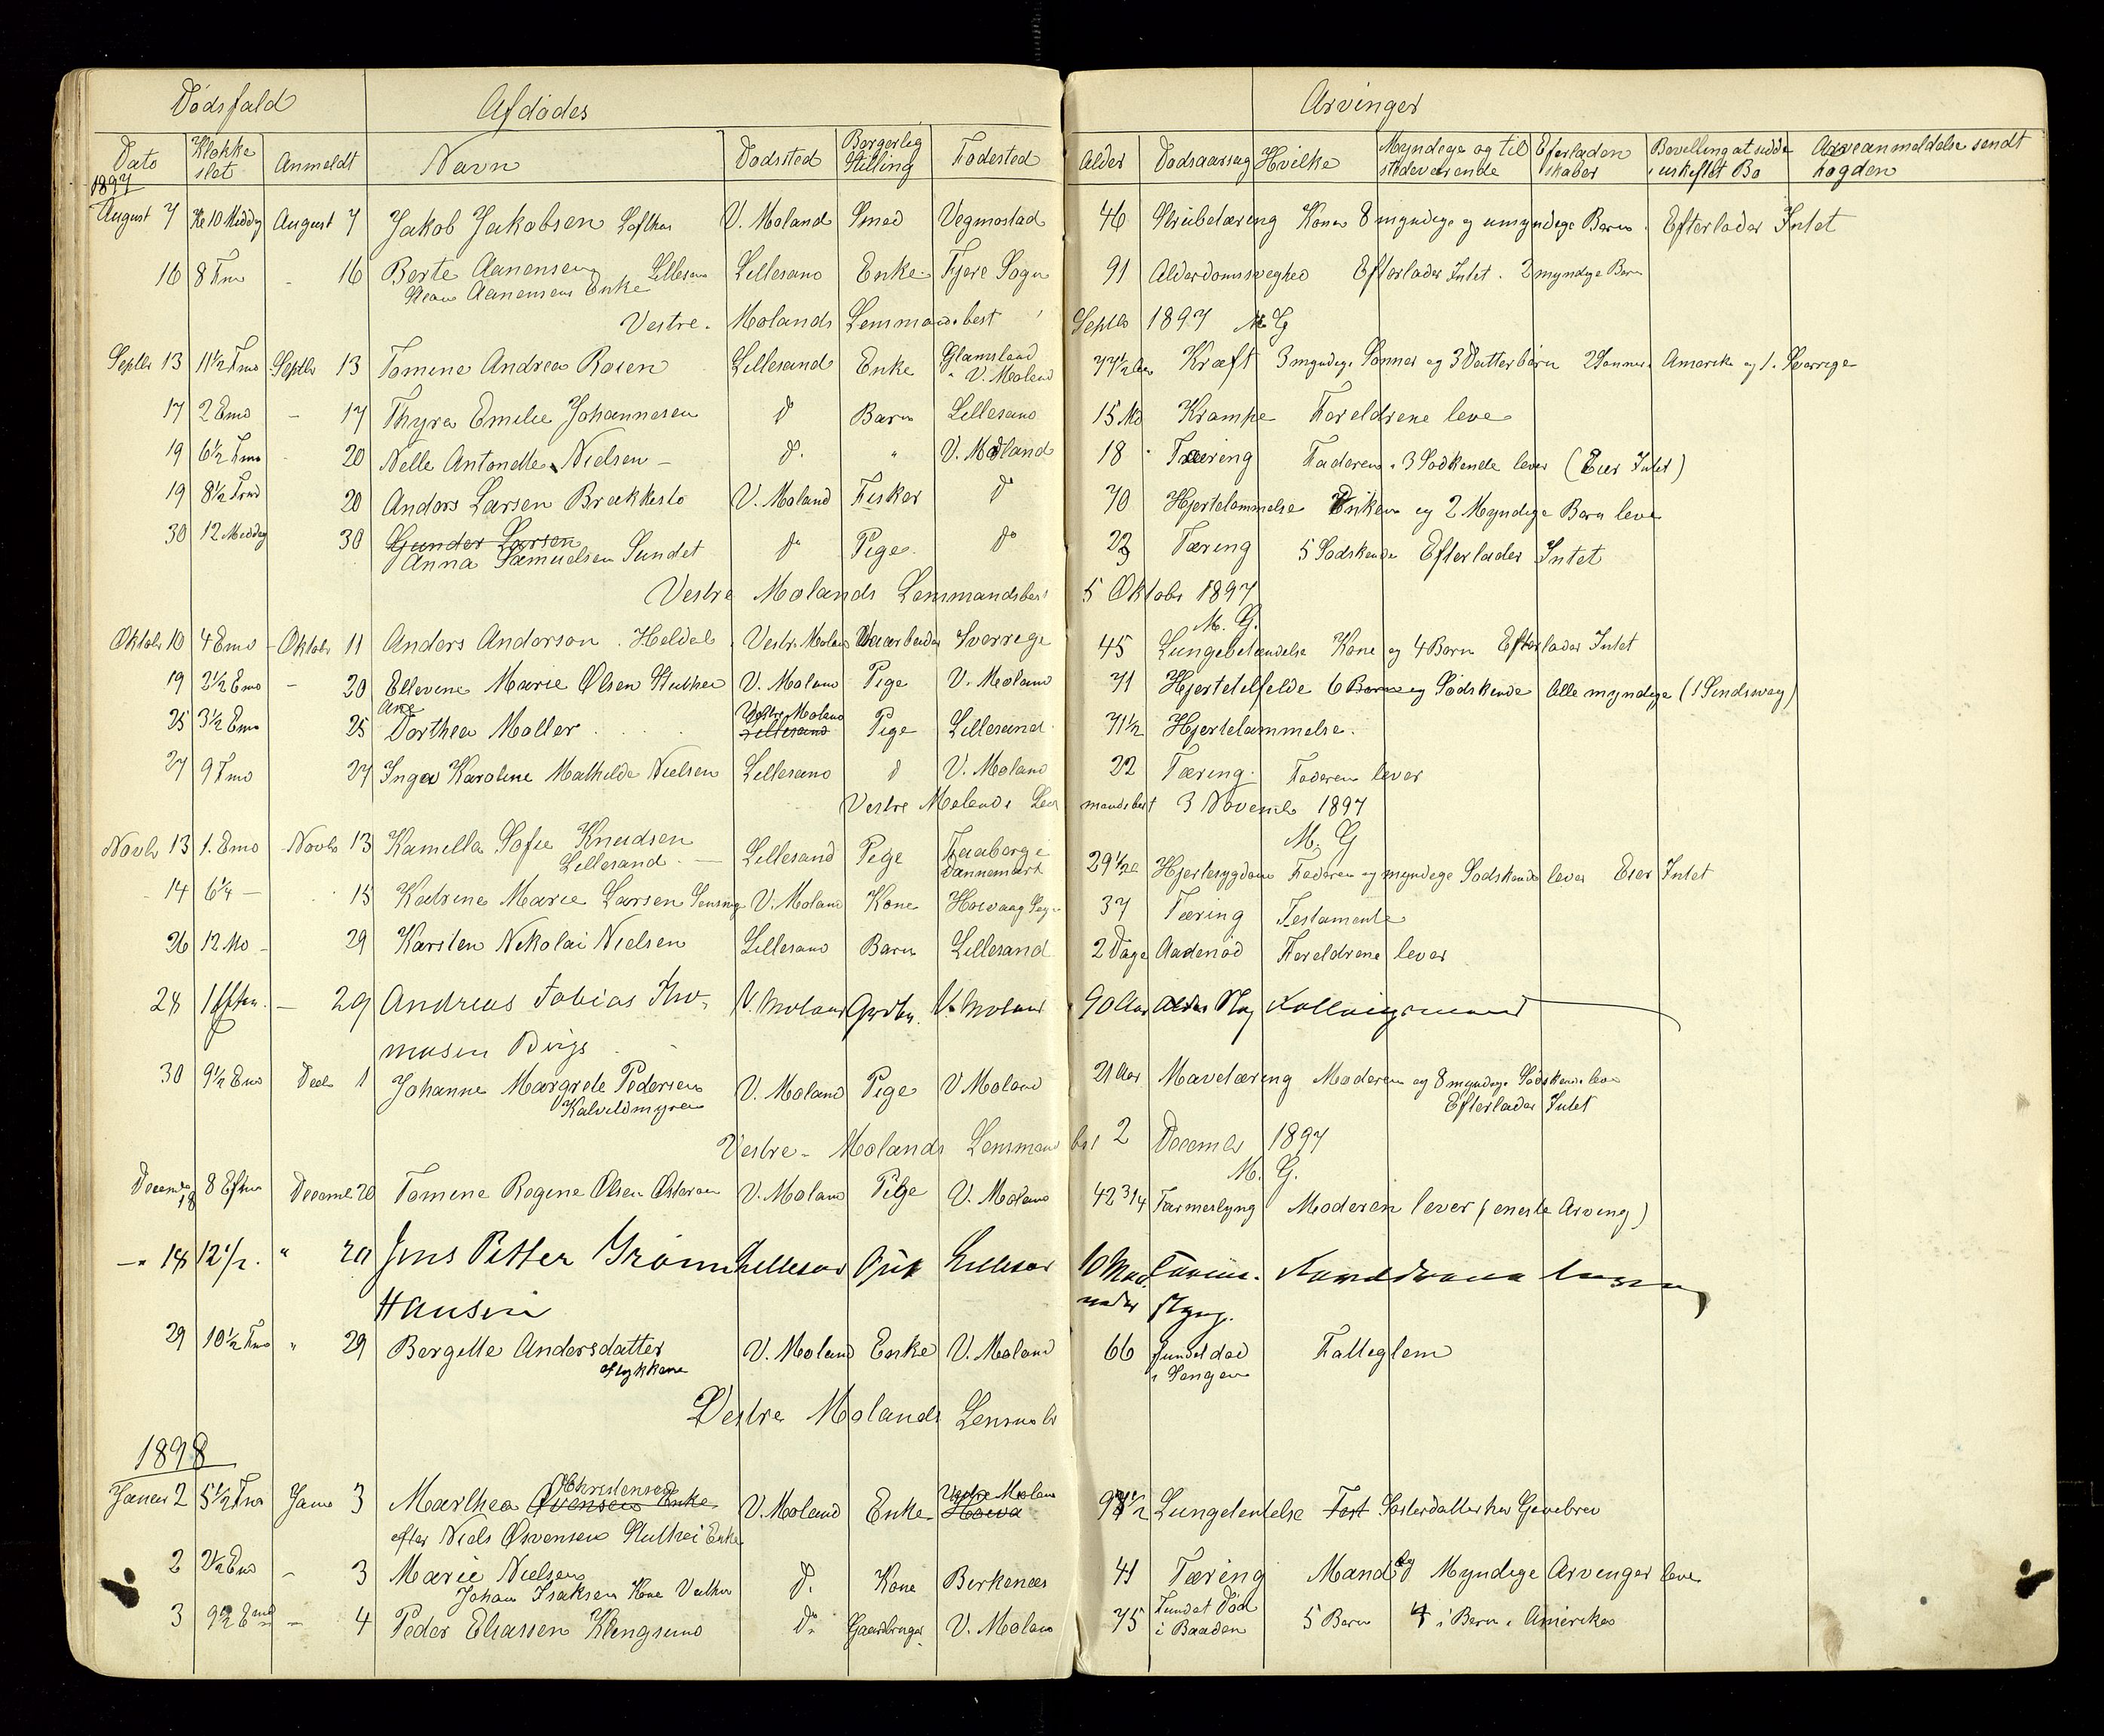 Dødsfald Afdødes Arvinger
Dato Klokkeslet Anmeldt Navn Dødssted Borgerlig Stilling Fødested Alder Dødsaarsag Hvilke Myndige og tilstedeværende Efterladenskaber Bevilling at sidde i uskiftet Bo Arveanmeldelse sendt fogden
1897
August 7 Kl 10 Middg August 7 Jakob Jakobsen V. Moland Smed Vegmostad 46 Strubetæring Kone 8 myndige og umyndige Børn. Efterlader Intet
16 8 Fm - 16 Berte Aanensen Lillesand Lillesand Enke Fjere Sogn 91 Alderdomssvaghed Efterlader Intet. 2 myndige Børn
Aanensens Enke
Vestre Molands Lensmandsbest Septbr 1897 M. G
Septbr 13 11½ Fmd Septbr 13 Tomine Andrea Rosen Lillesand Enke Glamsland V. Moland 77½ Kræft 3 myndige Sønner og 3 Datterbørn 2 Sønner i Amerika og 1 i Sverrige
17 2 Emd - 17 Thyra Emilie Johannesen do Barn Lillesand 15 Md Krampe Foreldrene leve
19 6½ Fmd - 20 Nelle Antonette Nielsen do. " V. Moland 18 Tæring Faderen, 3 Sødskende lever (Eier Intet)
19 8½ Fmd 20 Anders Larsen Brækkestø V. Moland Fisker do 70 Hjertelammelse Enken og 2 Myndige Børn leve
30 12 Middg 30 Gunder Larsen
Anna Samuelsen Sundet do Pige do 22 Tæring 5 Sødskende Efterlader Intet
Vestre Molands Lensmandsbest 5 Oktobr 1897
M. G.
Oktobr 10 4 Emd - Oktobr 11 Anders Anderson Heldal Vestre Moland Sverrige 45 Lungebetændelse Kone og 4 Børn Efterlader Intet
19 2½ Emd - 20 Ellevine Marie Olsen V. Moland Pige V. Moland 71 Hjertetilfelde 6 Børn og Sødskende Alle myndige
Ane Vestre Moland
25 3½ Emd 25 Dorthea Møller Lillesand Pige Lillesand 71½ Hjertelammelse.
27 9 Fmd 27 Inga Karoline Mathilde Nielsen Lillesand d V. Moland 22 Tæring. Faderen lever
Vestre Molands Lensmandsbest 3 Novembr 1897
M. G
Novbr 13 1. Emd Novbr 13 Kamilla Sofie Knudsen Lillesand Pige Faaborge Dannemark 29½ Hjertesygdom Faderen og myndige Sødskende lever Eier Intet
Lillesand
14 6¼ - 15 Katrine Marie Larsen V. Moland Kone Høivaag Sogn 37 Tæring Testamente
26 12 Md - 29 Karsten Nikolai Nielsen Lillesand Barn Lillesand 2 Dage Aadenød Foreldrene lever
28 1 Eftm. - 29 Andreas Tobias Tho- V. Moland Grdbr. V. Moland 90 Aar Kallvigsmænd
masen Birge
30 9½ Emd Decbr 1 Johanne Margrete Pedersen V. Moland Pige V Moland 21 Aar Mavetæring Moderen og 8 myndige Sødskende leve
Kalvildmyren Efterlader Intet
Vestre Molands Lensmandbest 2 Decembr 1897
M. G.
Decembr 18 8 Eftm Decembr 20 Tomine Regine Olsen Østeraen V. Moland Pige V. Moland 42 3/4 Tarmeslyng Moderen lever (eneste Arving)
-" 18 12½. " 20 Jens Petter Grønn Lillesand Gut Lillesand 10 Maaneder
Hansen
29 10½ Fmd " 29 Bergitte Andersdatter V. Moland Enke V. Moland 66 fundet død i Sengen Fattiglem
Vestre Molands Lensmbest
1898
Christensen Vestre Moland
Januar 2 5½ Fmd Janu 3 Marthea Ovensen Enke V. Moland Enke Lungebetentelse Søsterdatter har Gavebrev
efter Niels Ovensen Enke
2 2½ Emd - 3 Marie Nielsen do. Kone Birkenæs 41 Tæring Mand og Myndige Arvinger leve
Johan Isaksen Kone
3 9½ Emd - 4 Peder Eliassen Klingsund do Gaardbruger V. Moland 75 Fundet Død i Baaden 5 Børn 4 i Børn i Amerika